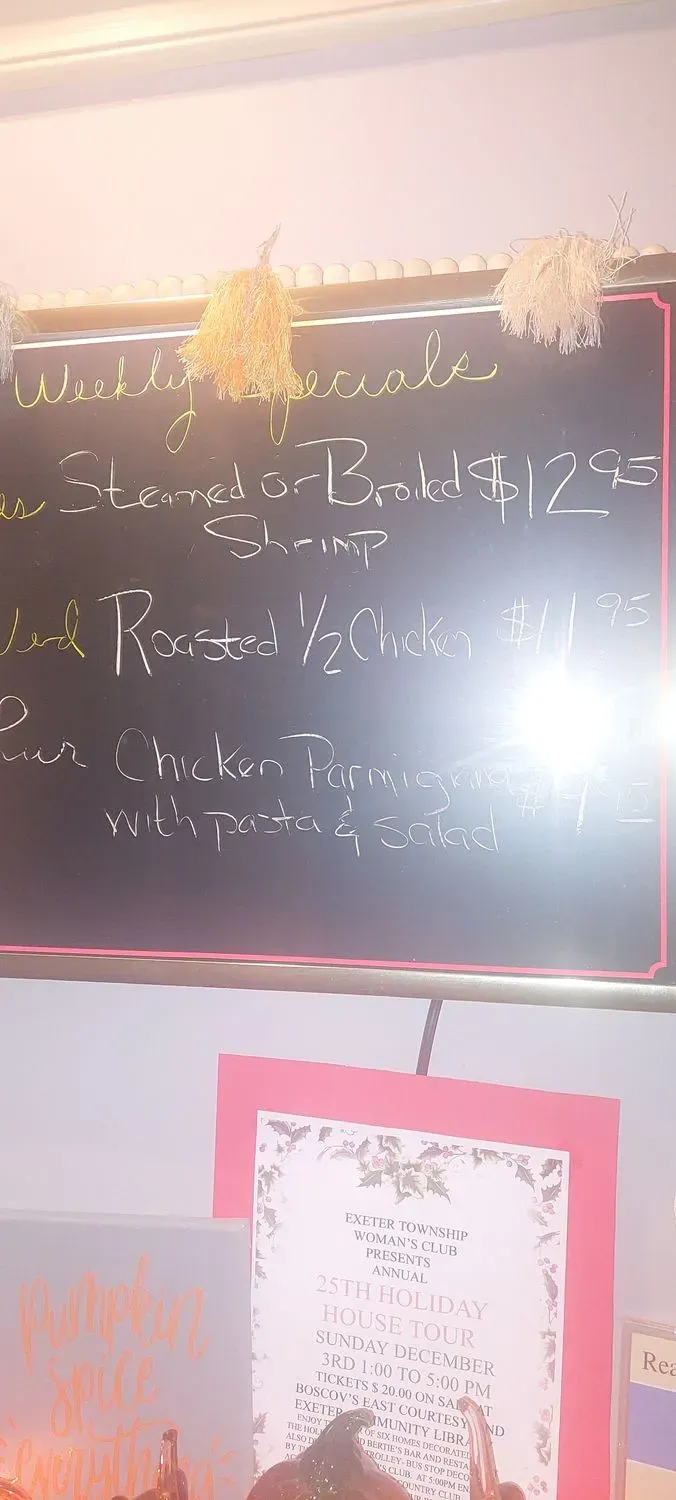 Weekly Specials
es Steamed or Broiled $12 95
Shrimp
Wed Roasted 1/2 Chicken $11 95
hur Chicken Parmigiana
with pasta & salad
EXETER TOWNSHIP
WOMAN'S CLUB
PRESENTS
ANNUAL
25TH HOLIDAY
HOUSE TOUR
SUNDAY DECEMBER
3RD 1:00 TO 5:00 PM
TICKETS $ 20.00 ON SA AT
BOSCOV'S EAST COURTESY ND
EXETER MMUNITY LIBRA
ENJOY T OF SIX HOMES DECORATED
THE HOL D BERTIE'S BAR AND RESTA
ALSO D TROLLEY- BUS STOP DECO
BY T 'S CLUB. AT 5:00PM EN
COUNTRY CLUB
pumpkin
spice
everything
Rea